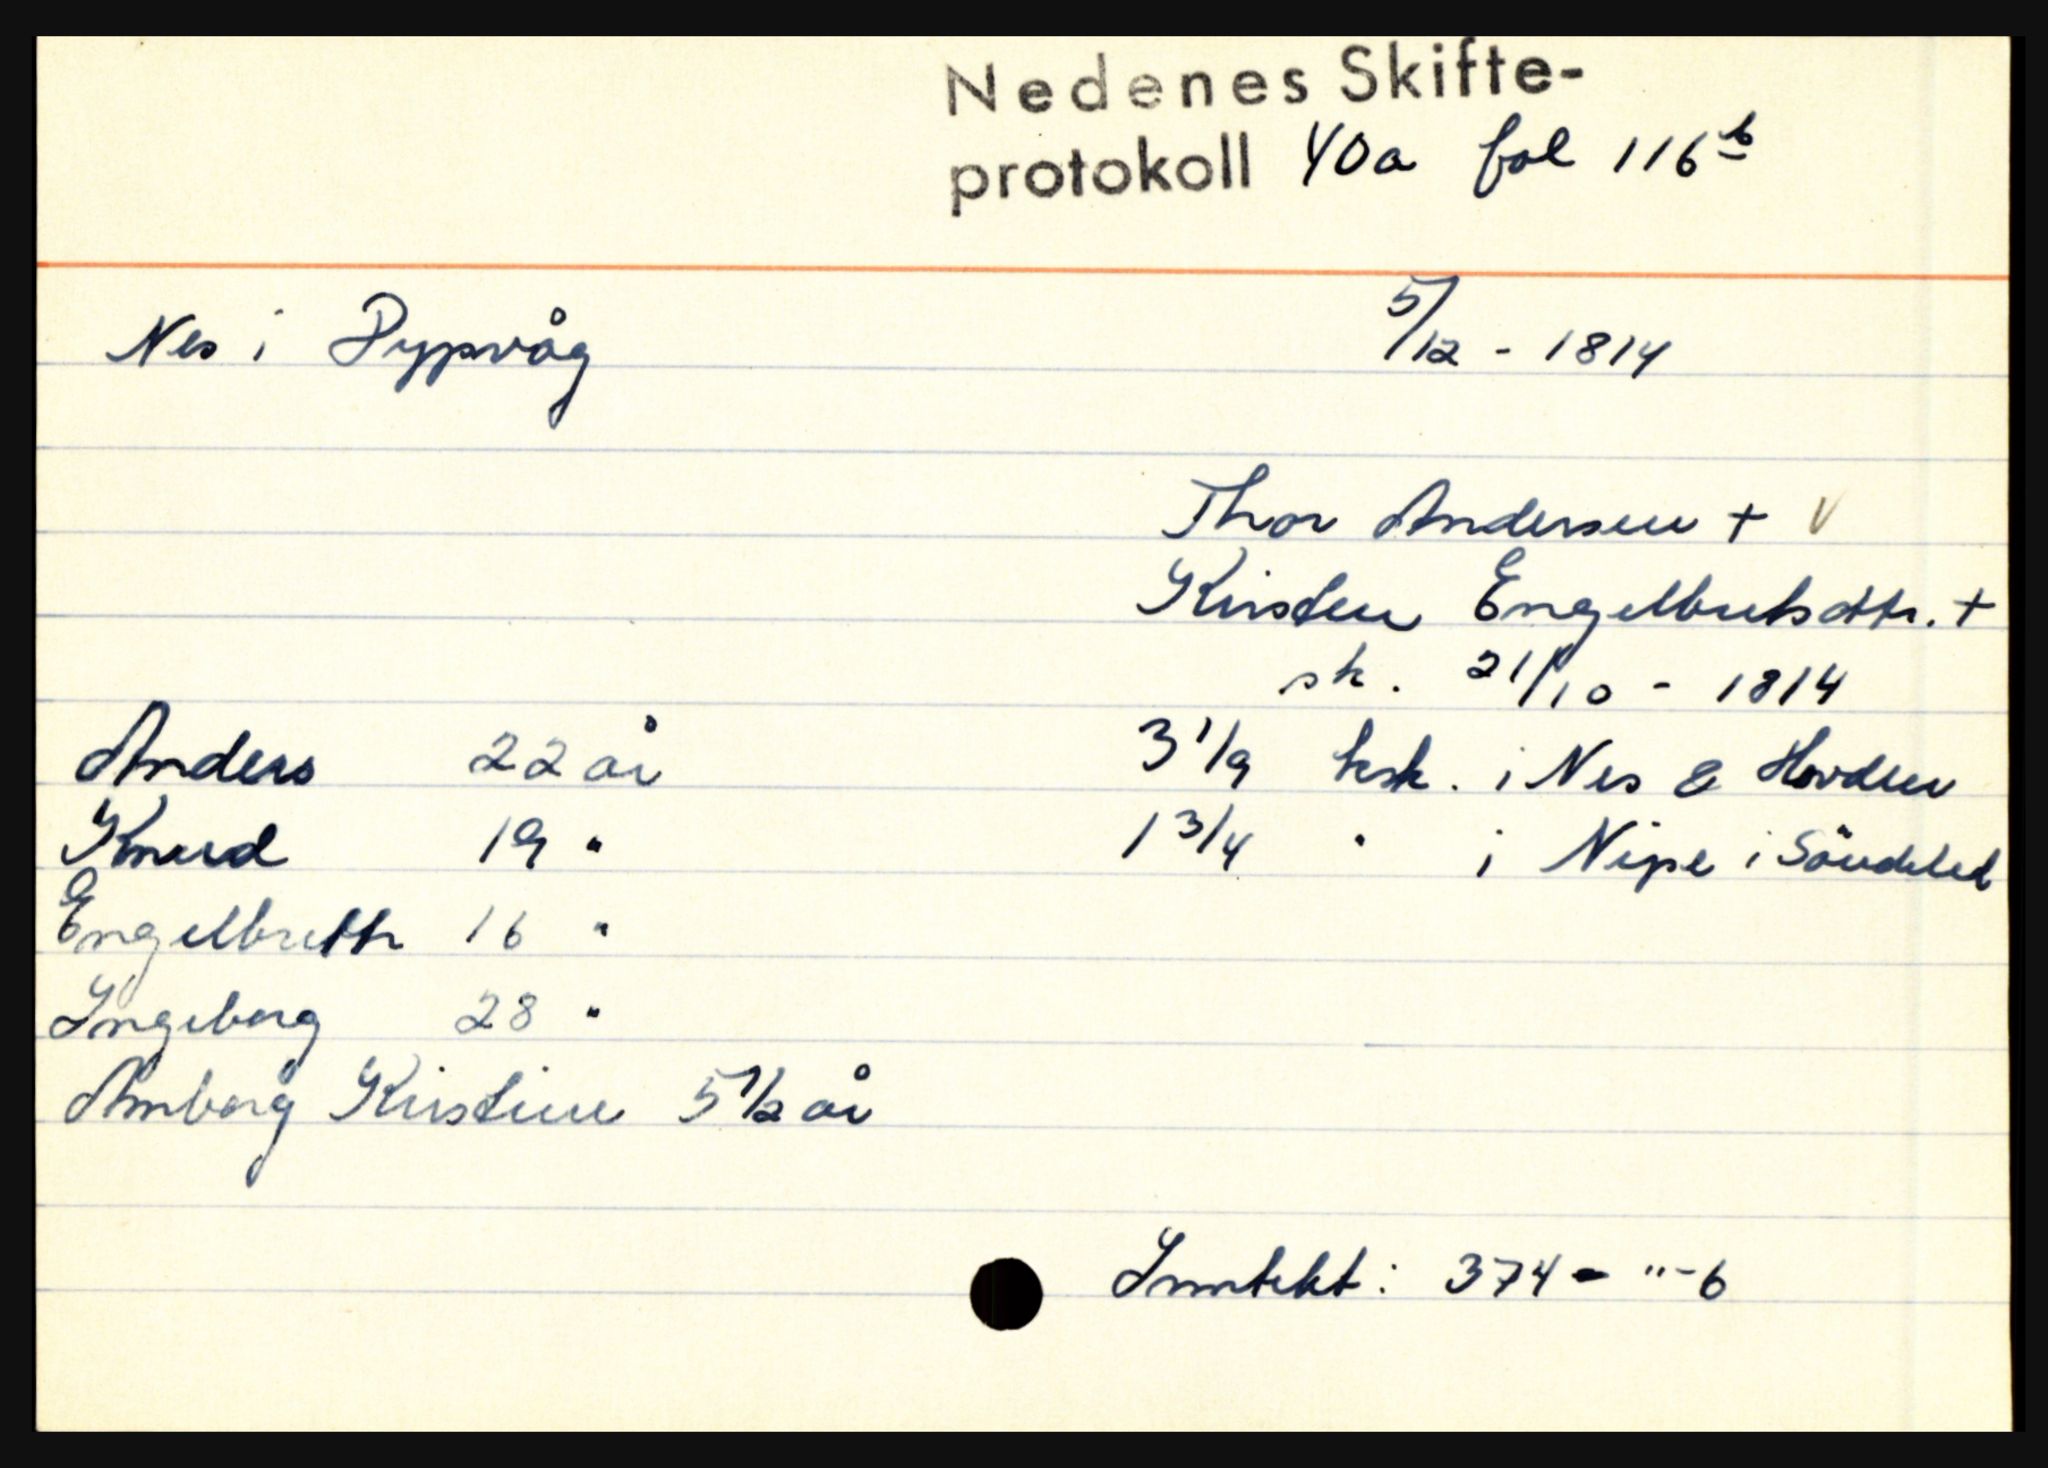 Nedenes Skifte-
protokoll 40a fol 116 b
Nes i Dypvåg 5/12 - 1814
Thor Andersen + V
Kirsten Engelbretsdttr. +
sk. 21/10 - 1814
Anders 22 år 3 1/9 ksk. i Nes & Hovden
Knud 19 " 1 3/4 " i Nipe i Söndeled
Engelbrett 16 "
Ingeborg 28 "
Amborg Kirstine 5 1/2 år
Inntekt: 374 - " - 6